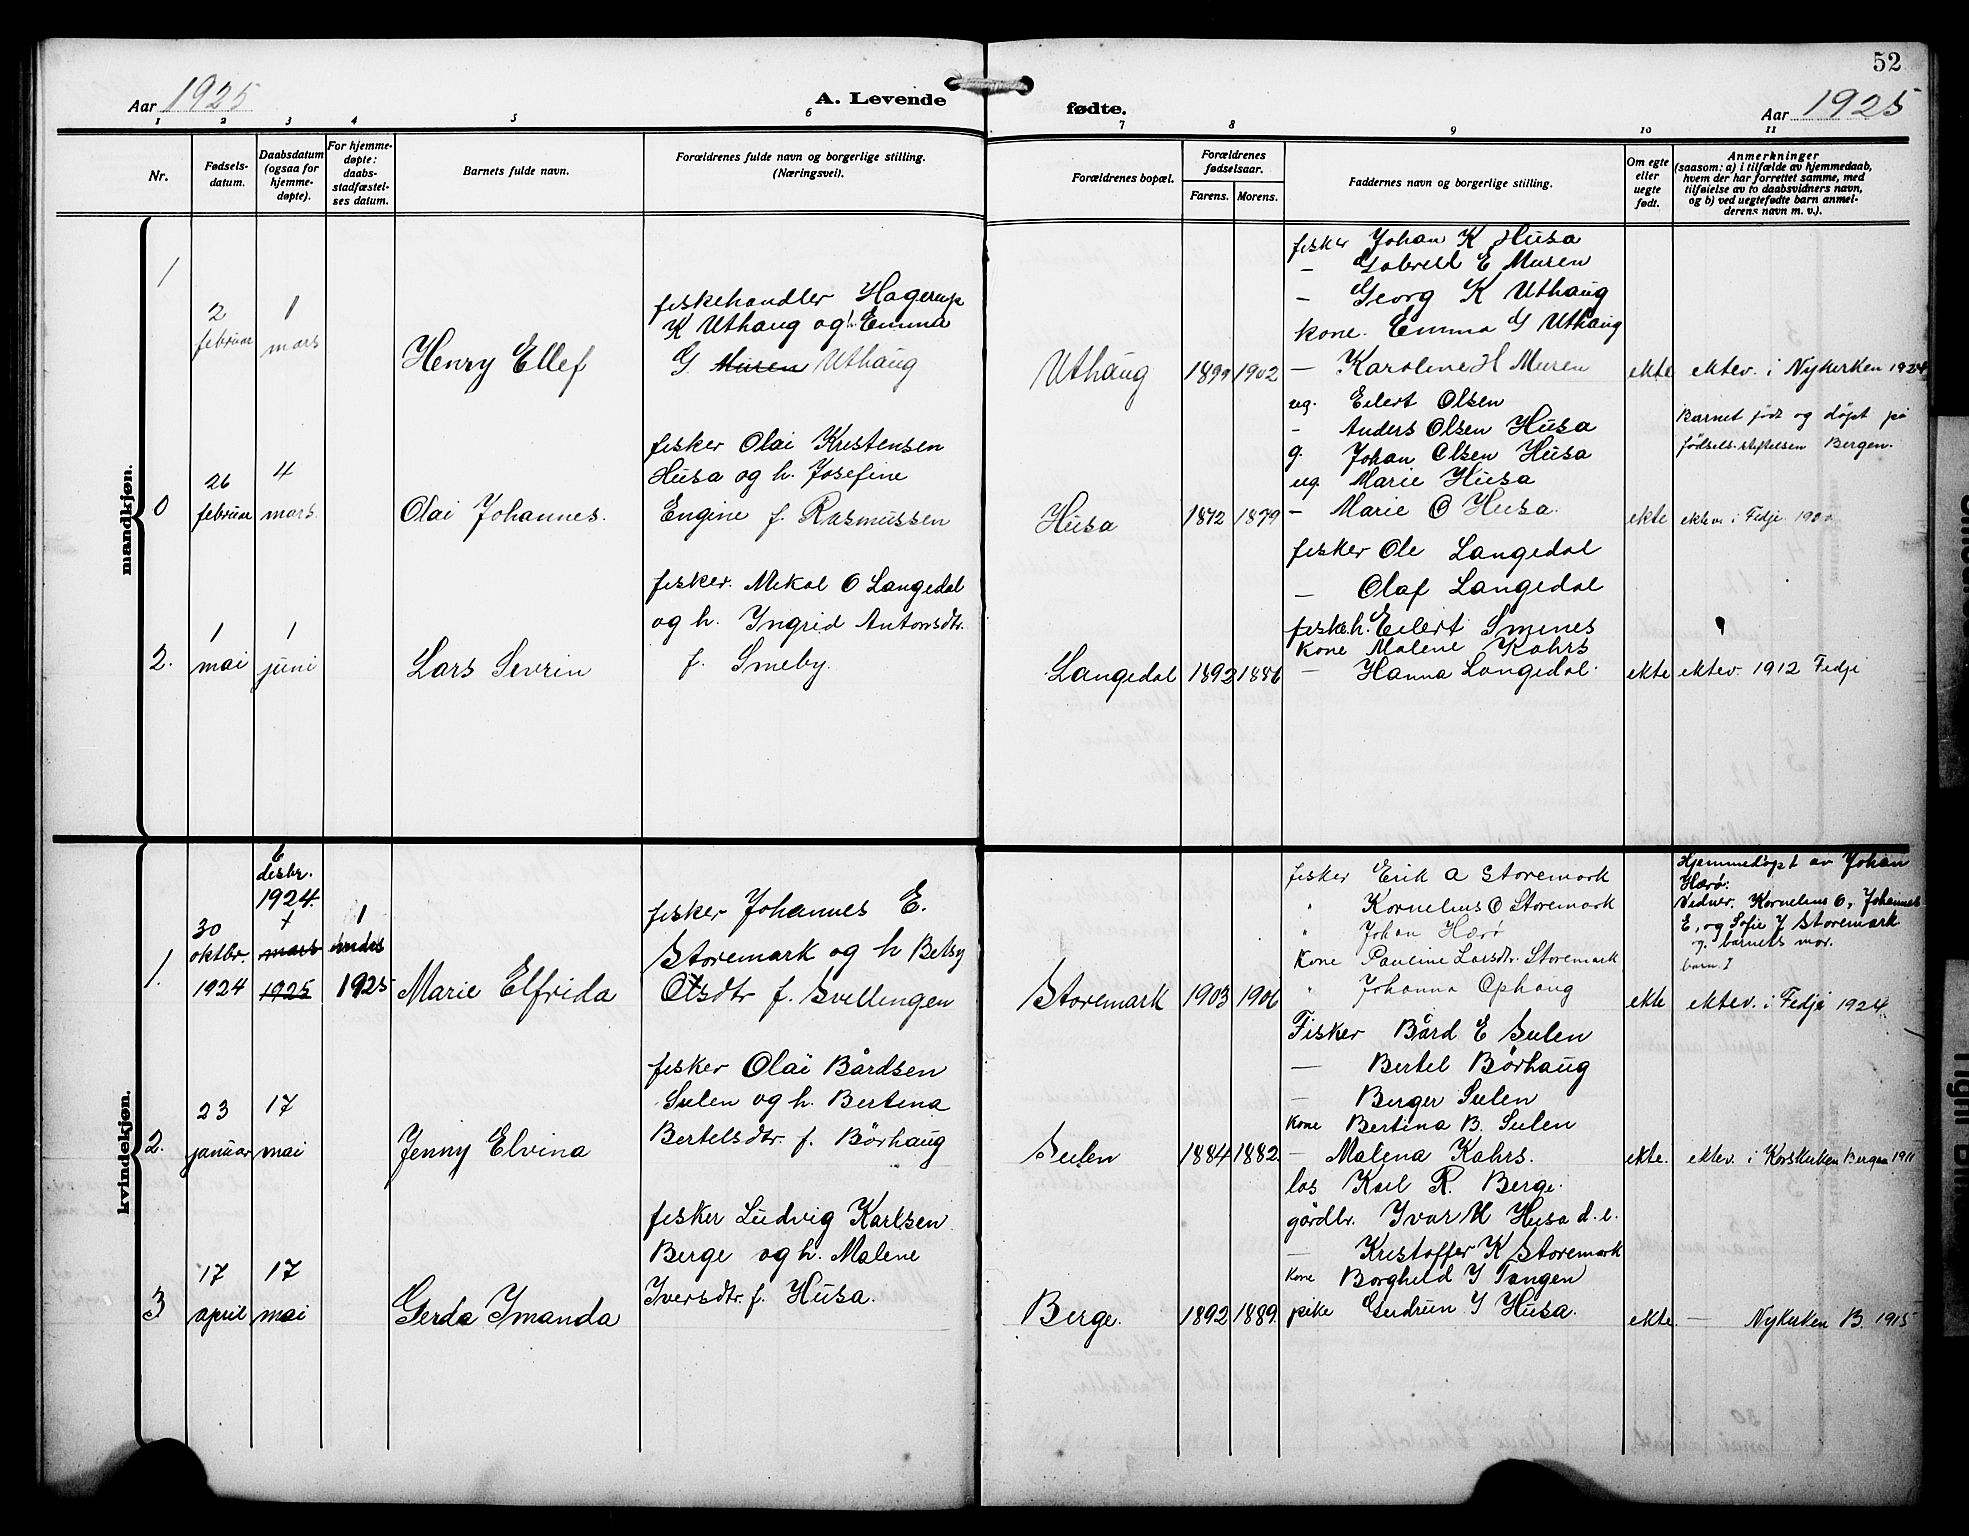 52
Aar 1925
A. Levende fødte.
Aar 1925
1 2 3 4 5 6 7 8 9 10 11
Nr.
Fødsels-
datum.
Daabsdatum
(ogsaa for
hjemme-
døpte).
For hjemme-
døpte:
daabs-
stadfæstel-
ses datum.
Barnets fulde navn.
Forældrenes fulde navn og borgerlige stilling.
(Næringsvei).
Forældrenes bopæl.
Forældrenes
fødselsaar.
Farens. Morens.
Faddernes navn og borgerlige stilling.
Om egte
eller
uegte
født.
Anmerkninger
(saasom: a) i tilfælde av hjemmedaab,
hvem der har forrettet samme, med
tilføielse av to daabsvidners navn,
og b) ved uegtefødte barn anmel-
derens navn m. v.).
mandkjøn.
1
2
februar
1
mars
Henry Ellef
fiskehandler Hagerup
K Uthaug og h. Emma
G Muren Uthaug
Uthaug
1899 1902
fisker Johan K Husa
— Gabriel E Muren
— Georg K Uthaug
kone. Emma G Uthaug
— Karoline H Muren
ekte
ektev. i Nykirken 1924
0
26
februar
4
mars.
Olai Johannes.
fisker Olai Kristensen
Husa og h. Josefine
Engine f. Rasmussen
Husa
1872 1879
ug. Eilert Olsen
- Anders Olsen Husa
g. Johan Olsen Husa
ug Marie Husa
- Marie O Husa.
ekte
Barnet født og døpt på
fødsels-stiftelsen Bergen.
ektev. i Fedje 1900
2.
1
mai
1
juni
Lars Sevrin
fisker. Mekal O Langedal
og h. Ingrid Antonsdtr.
f. Smeby.
Langedal
1892 1886
fisker Ole Langedal
— Olaf Langedal
fiskeh. Eilert Smines
kone Malene Kahrs
— Hanna Langedal.
ekte
ektev. 1912 Fedje
kvindekjøn.
1.
30
oktbr.
1924
6
desbr.
1924.
+
mars
1925
1
1925
Marie Elfrida
fisker Johannes E.
Storemark og h Betsy
Olsdtr f. Svellingen
Storemark
1903 1906
fisker Erik A Storemark
" Kornelius O Storemark
" Johan Hærø
Kone Pauline Larsdtr. Storemark
" Johanna Ophaug
ekte
Hjemmedøpt av Johan
Hærø:
Vidner. Kornelius O, Johannes
E, og Sofie J Storemark
og barnets mor.
ektev. i Fedje 1924.
2.
23
januar
17
mai
Jenny Elvina
fisker Olai Bårdsen
Sulen og h. Bertina
Bertelsdtr. f. Börhaug
Sulen
1884 1882.
Fisker Bård E Sulen
— Bertel Börhaug
— Berger Sulen
Kone Bertina B. Sulen
— Malena Kahrs.
ekte.
ektev. i Korskirken Bergen 1911
3
17
april
17
mai
Gerda Imanda
fisker Ludvig Karlsen
Berge og h. Malene
Iversdtr. f. Husa.
Berge.
1892 1889.
los Karl R. Berge.
gårdbr. Ivar M Husa d. e.
— Kristoffer K Storemark
Kone Borghild I Tangen
pike Gudrun I Husa.
ekte.
— Nykirken B. 1915